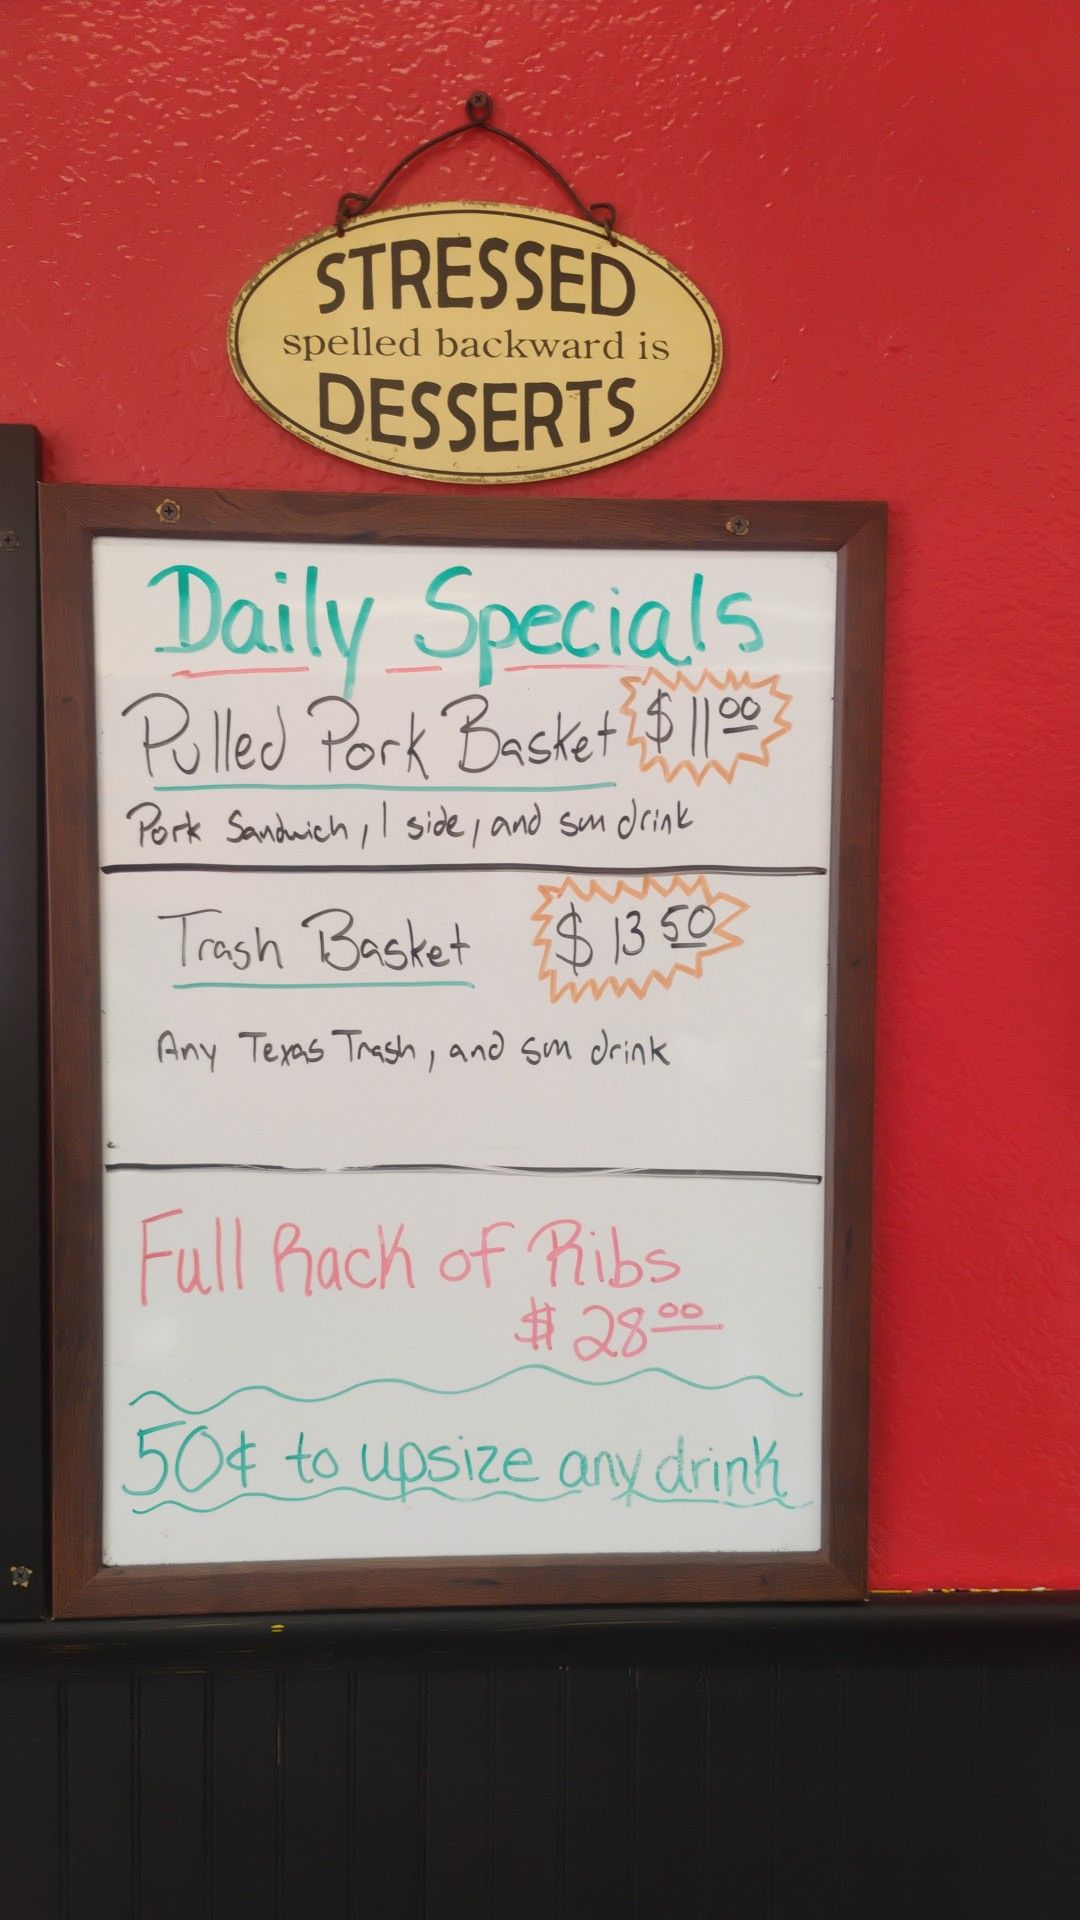 STRESSED
spelled backward is
DESSERTS
Daily Specials
Pulled Pork Basket $11.00
Pork Sandwich, 1 side, and sm drink
Trash Basket $13.50
Any Texas Trash, and sm drink
Full Rack of Ribs
$28.00
50¢ to upsize any drink